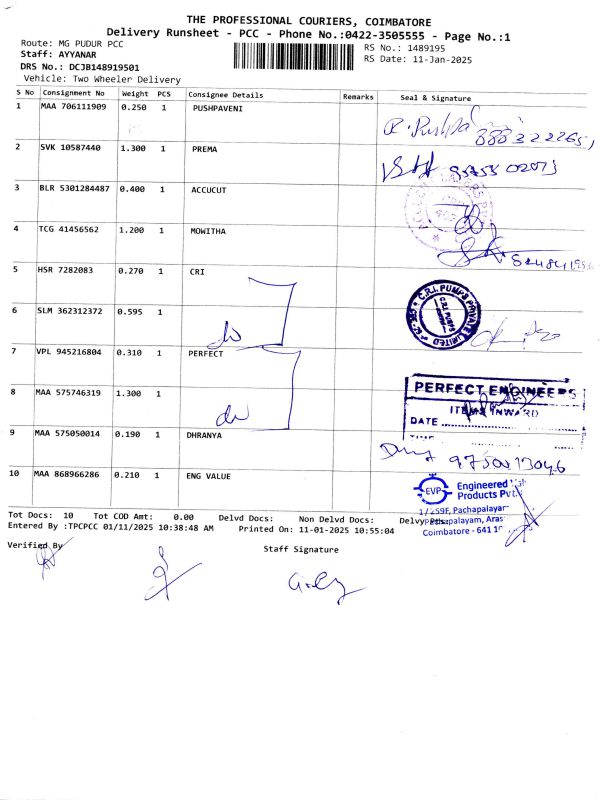 THE PROFESSIONAL COURIERS, COIMBATORE
Delivery Runsheet - PCC - Phone No.:0422-3505555 - Page No.:1
Route: MG PUDUR PCC
RS No.: 1489195
Staff: AYYANAR
RS Date: 11-Jan-2025
DRS No.: DCJB148919501
Vehicle: Two Wheeler Delivery
S No Consignment No Weight PCS Consignee Details Remarks Seal & Signature
1 MAA 706111909 0.250 1 PUSHPAVENI
R. Pushpa
2 SVK 10587440 1.300 1 PREMA
3 BLR 5301284487 0.400 1 ACCUCUT
4 TCG 41456562 1.200 1 MOWITHA
5 HSR 7282083 0.270 1 CRI
C.R.I. PUMPS PRIVATE LIMITED
C.R.I. PUMPS
6 SLM 362312372 0.595 1
7 VPL 945216804 0.310 1 PERFECT
PERFECT ENGINEERS
ITEMS INWARD
DATE
8 MAA 575746319 1.300 1
9 MAA 575050014 0.190 1 DHRANYA
10 MAA 868966286 0.210 1 ENG VALUE
EVP Engineered
Products Pvt.
1/259F, Pachapalayam
Coimbatore - 641
Tot Docs: 10 Tot COD Amt: 0.00 Delvd Docs: Non Delvd Docs:
Entered By :TPCPCC 01/11/2025 10:38:48 AM Printed On: 11-01-2025 10:55:04
Verified By
Staff Signature